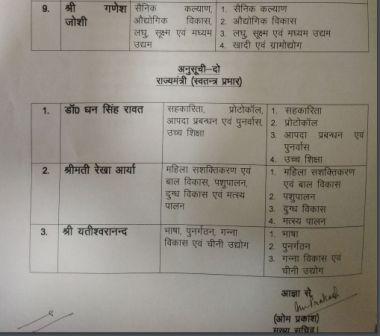 9. श्री गणेश सैनिक कल्याण, 1. सैनिक कल्याण
जोशी औद्योगिक विकास, 2. औद्योगिक विकास
लघु, सूक्ष्म एवं मध्यम 3. लघु, सूक्ष्म एवं मध्यम उद्यम
उद्यम 4. खादी एवं ग्रामोद्योग
अनुसूची-दो
राज्यमंत्री (स्वतन्त्र प्रभार)
1. डॉ0 धन सिंह रावत सहकारिता, प्रोटोकॉल, 1. सहकारिता
आपदा प्रबन्धन एवं पुनर्वास, 2. प्रोटोकॉल
उच्च शिक्षा 3. आपदा प्रबंधन एवं
पुनर्वास
4. उच्च शिक्षा
2. श्रीमती रेखा आर्या महिला सशक्तिकरण एवं 1. महिला सशक्तिकरण
बाल विकास, पशुपालन, एवं बाल विकास
दुग्ध विकास एवं मत्स्य 2. पशुपालन
पालन 3. दुग्ध विकास
4. मत्स्य पालन
3. श्री यतीश्वरानन्द भाषा, पुनर्गठन, गन्ना 1. भाषा
विकास एवं चीनी उद्योग 2. पुनर्गठन
3. गन्ना विकास एवं
चीनी उद्योग
आज्ञा से,
Om Prakash
(ओम प्रकाश)
मुख्य सचिव।